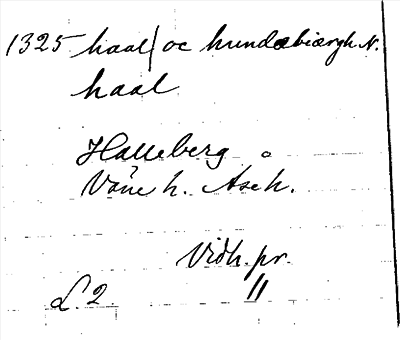 1325 haal/oc hundebiærgh N.
haal
Halleberg
Väne h. Äsch.
Vidh. pr.
L. 2. "